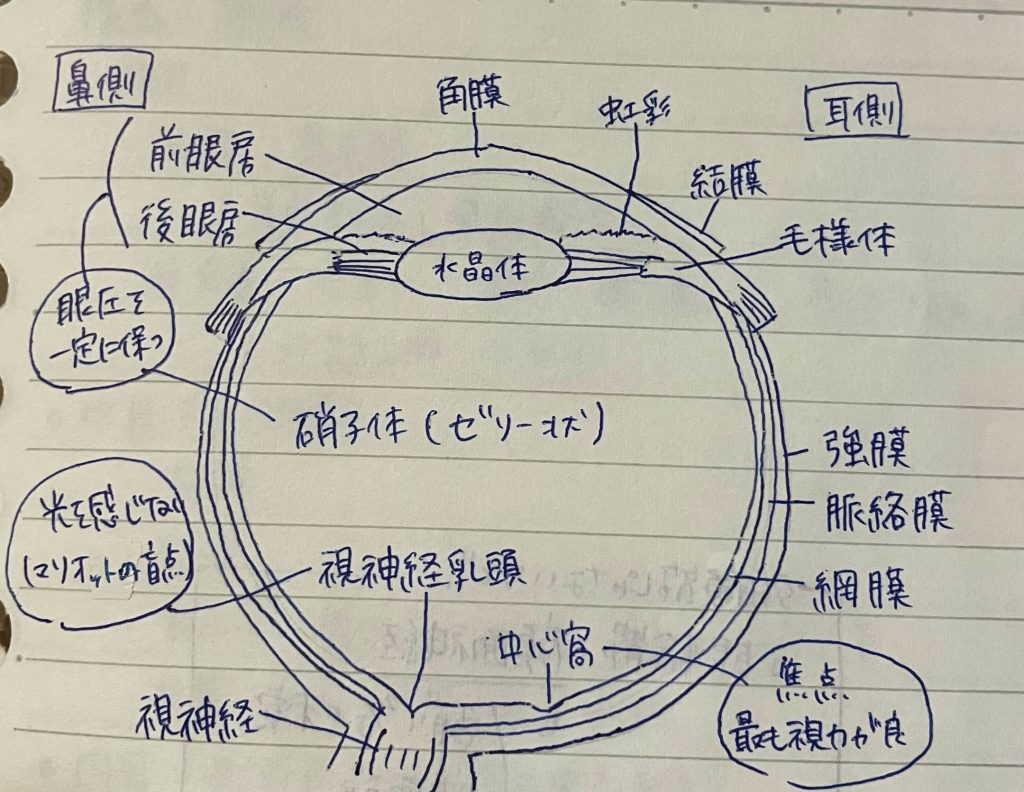 鼻側
角膜
虹彩
耳側
前眼房
結膜
後眼房
毛様体
水晶体
眼圧を
一定に保つ
硝子体(ゼリー状)
強膜
脈絡膜
網膜
光を感じない
(マリオットの盲点)
視神経乳頭
中心窩
焦点
最も視力が良
視神経